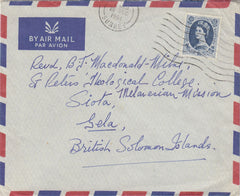 BY AIR MAIL
PAR AVION
Revd. B.J. Macdonald-Milne,
St Peters Theological College,
Siota, Melanesian Mission
Gela,
British Solomon Islands.